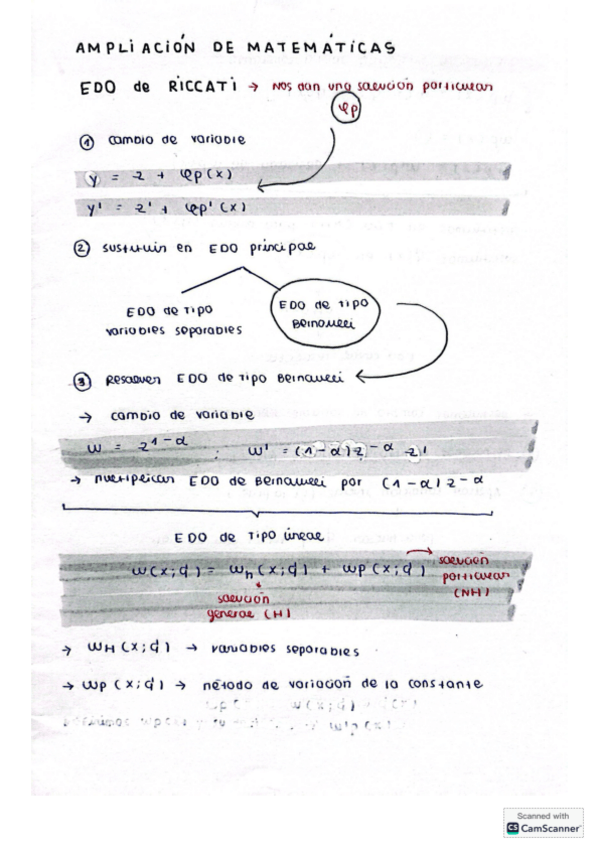 AMPLIACIÓN DE MATEMÁTICAS
EDO de RICCATI → nos dan una solución particular
φp
① cambio de variable
y = z + φp(x)
y' = z' + φp'(x)
② sustituir en EDO principal
EDO de tipo variables separables
EDO de tipo Bernoulli
③ Resolver EDO de tipo Bernoulli
→ cambio de variable
w = z^1-α ; w' = (1-α) z^-α z'
→ multiplicar EDO de Bernoulli por (1-α) z^-α
EDO de tipo lineal
w(x;d) = wh(x;d) + wp(x;d) → solución particular (NH)
solución general (H)
→ wH(x;d) → variables separables
→ wp(x;d) → método de variación de la constante
Scanned with
CS CamScanner